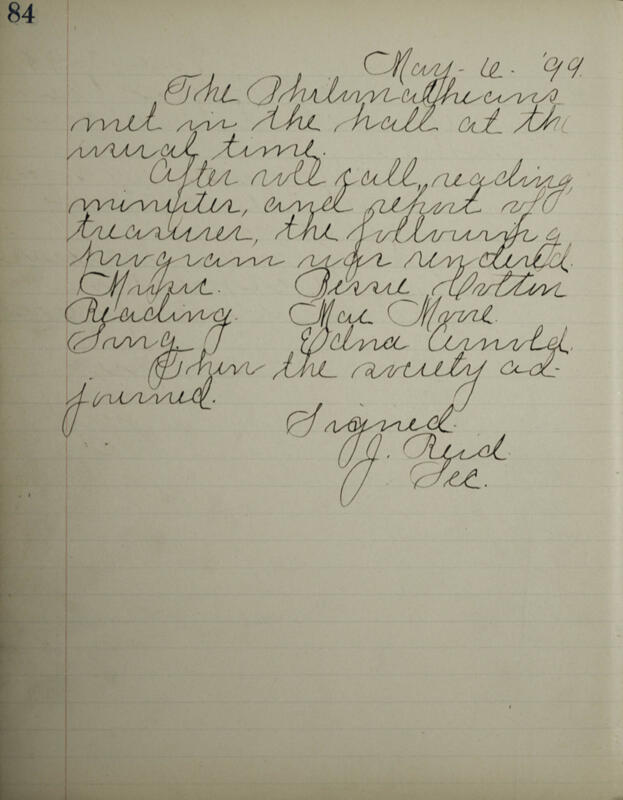 84
May - 6. '99.
The Philomatheans
met in the hall at the
usual time.
After roll call, reading,
minutes, and report of
treasurer, the following
program was rendered.
Music. Bessie Cotton
Reading. Mae Moore.
Song Edna Arnold.
Then the society ad-
journed.
Signed.
J. Reid.
Sec.